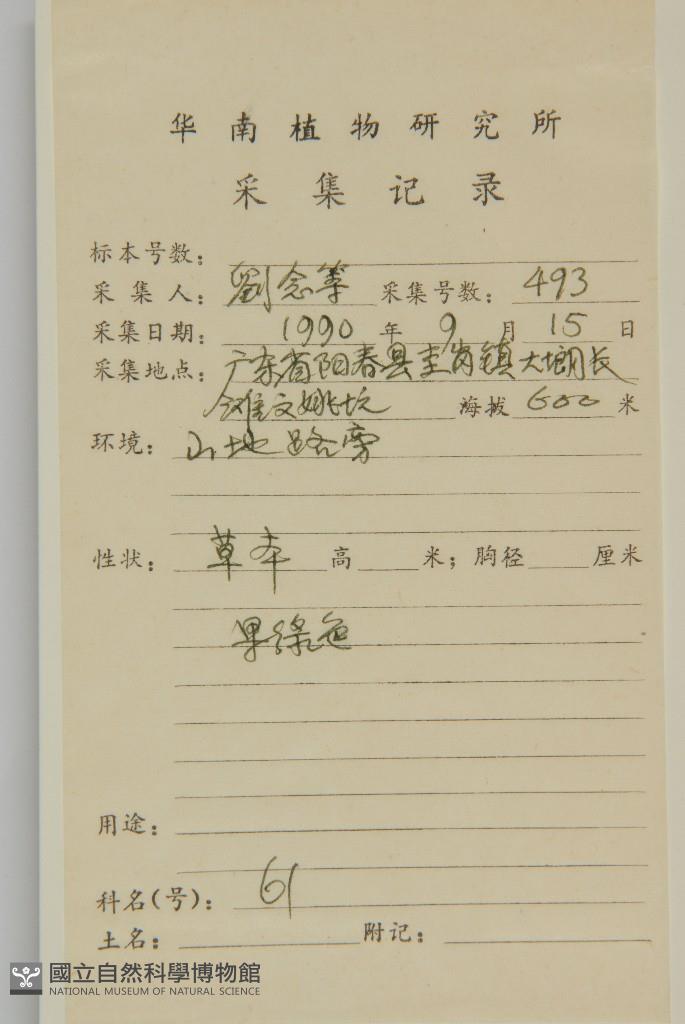 华南植物研究所
采集记录
标本号数：
采集人：劉念等 采集号数：493
采集日期：1990年9月15日
采集地点：广东省阳春县圭岗镇大塱长
滩文姚坑 海拔600米
环境：山地路旁
性状：草本 高 米；胸径 厘米
果绿色
用途：
科名(号)：61
土名： 附记：
國立自然科學博物館
NATIONAL MUSEUM OF NATURAL SCIENCE